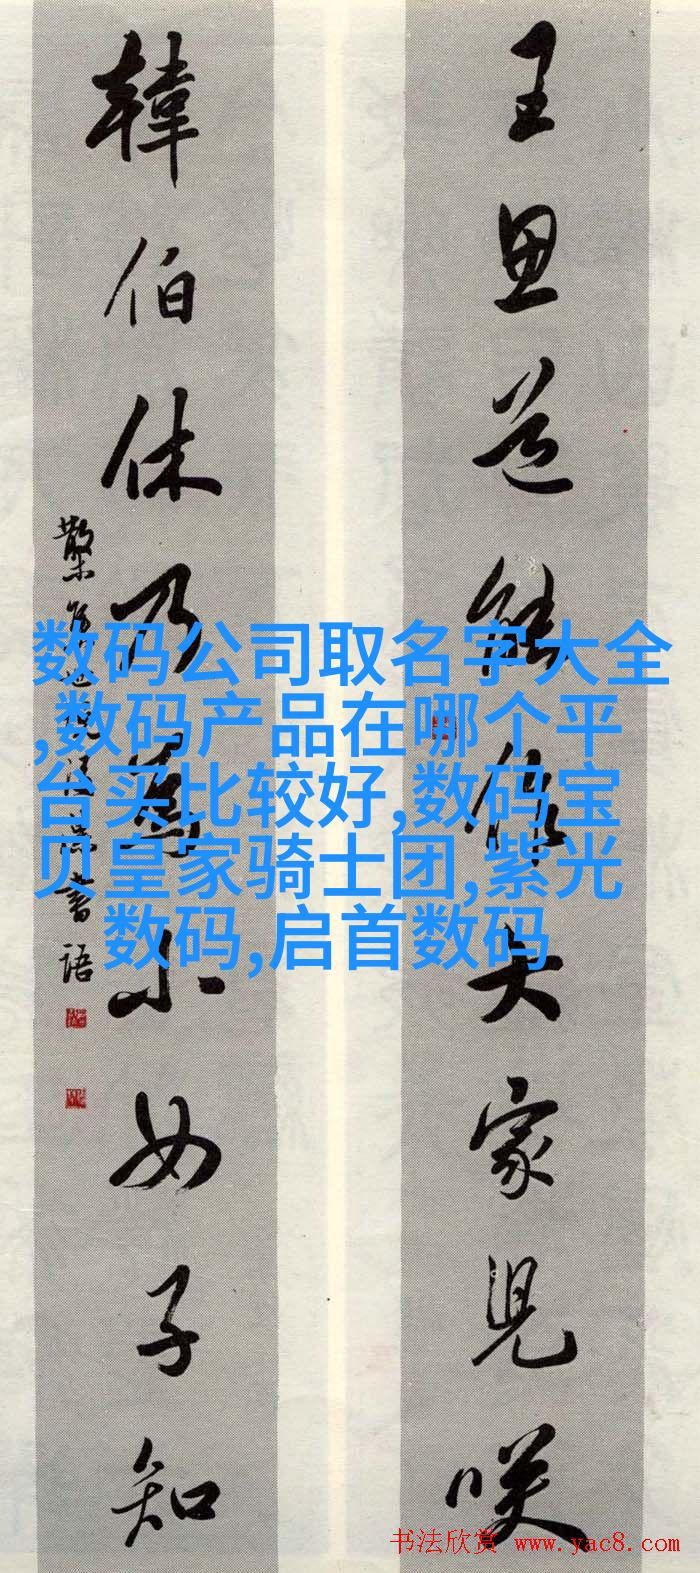 王思道能作大家兒咲
韓伯休乃爲小女子知
数码公司取名字大全
,数码产品在哪个平
台买比较好,数码宝
贝皇家骑士团,紫光
数码,启首数码
书法欣赏 www.yac8.com